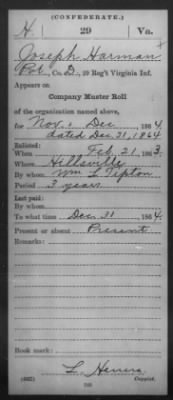 (CONFEDERATE.)
H. 29 Va.
Joseph Harman
Pvt, Co. D, 29 Reg't Virginia Inf.
Appears on
Company Muster Roll
of the organization named above,
for Nov. & Dec., 1864.
dated Dec. 31, 1864
Enlisted:
When Feb. 21, 1863.
Where Hillsville
By whom Wm L Tipton
Period 3 years
Last paid:
By whom
To what time Dec. 31, 1864.
Present or absent Present
Remarks:
Book mark:
(642)
Copyist.